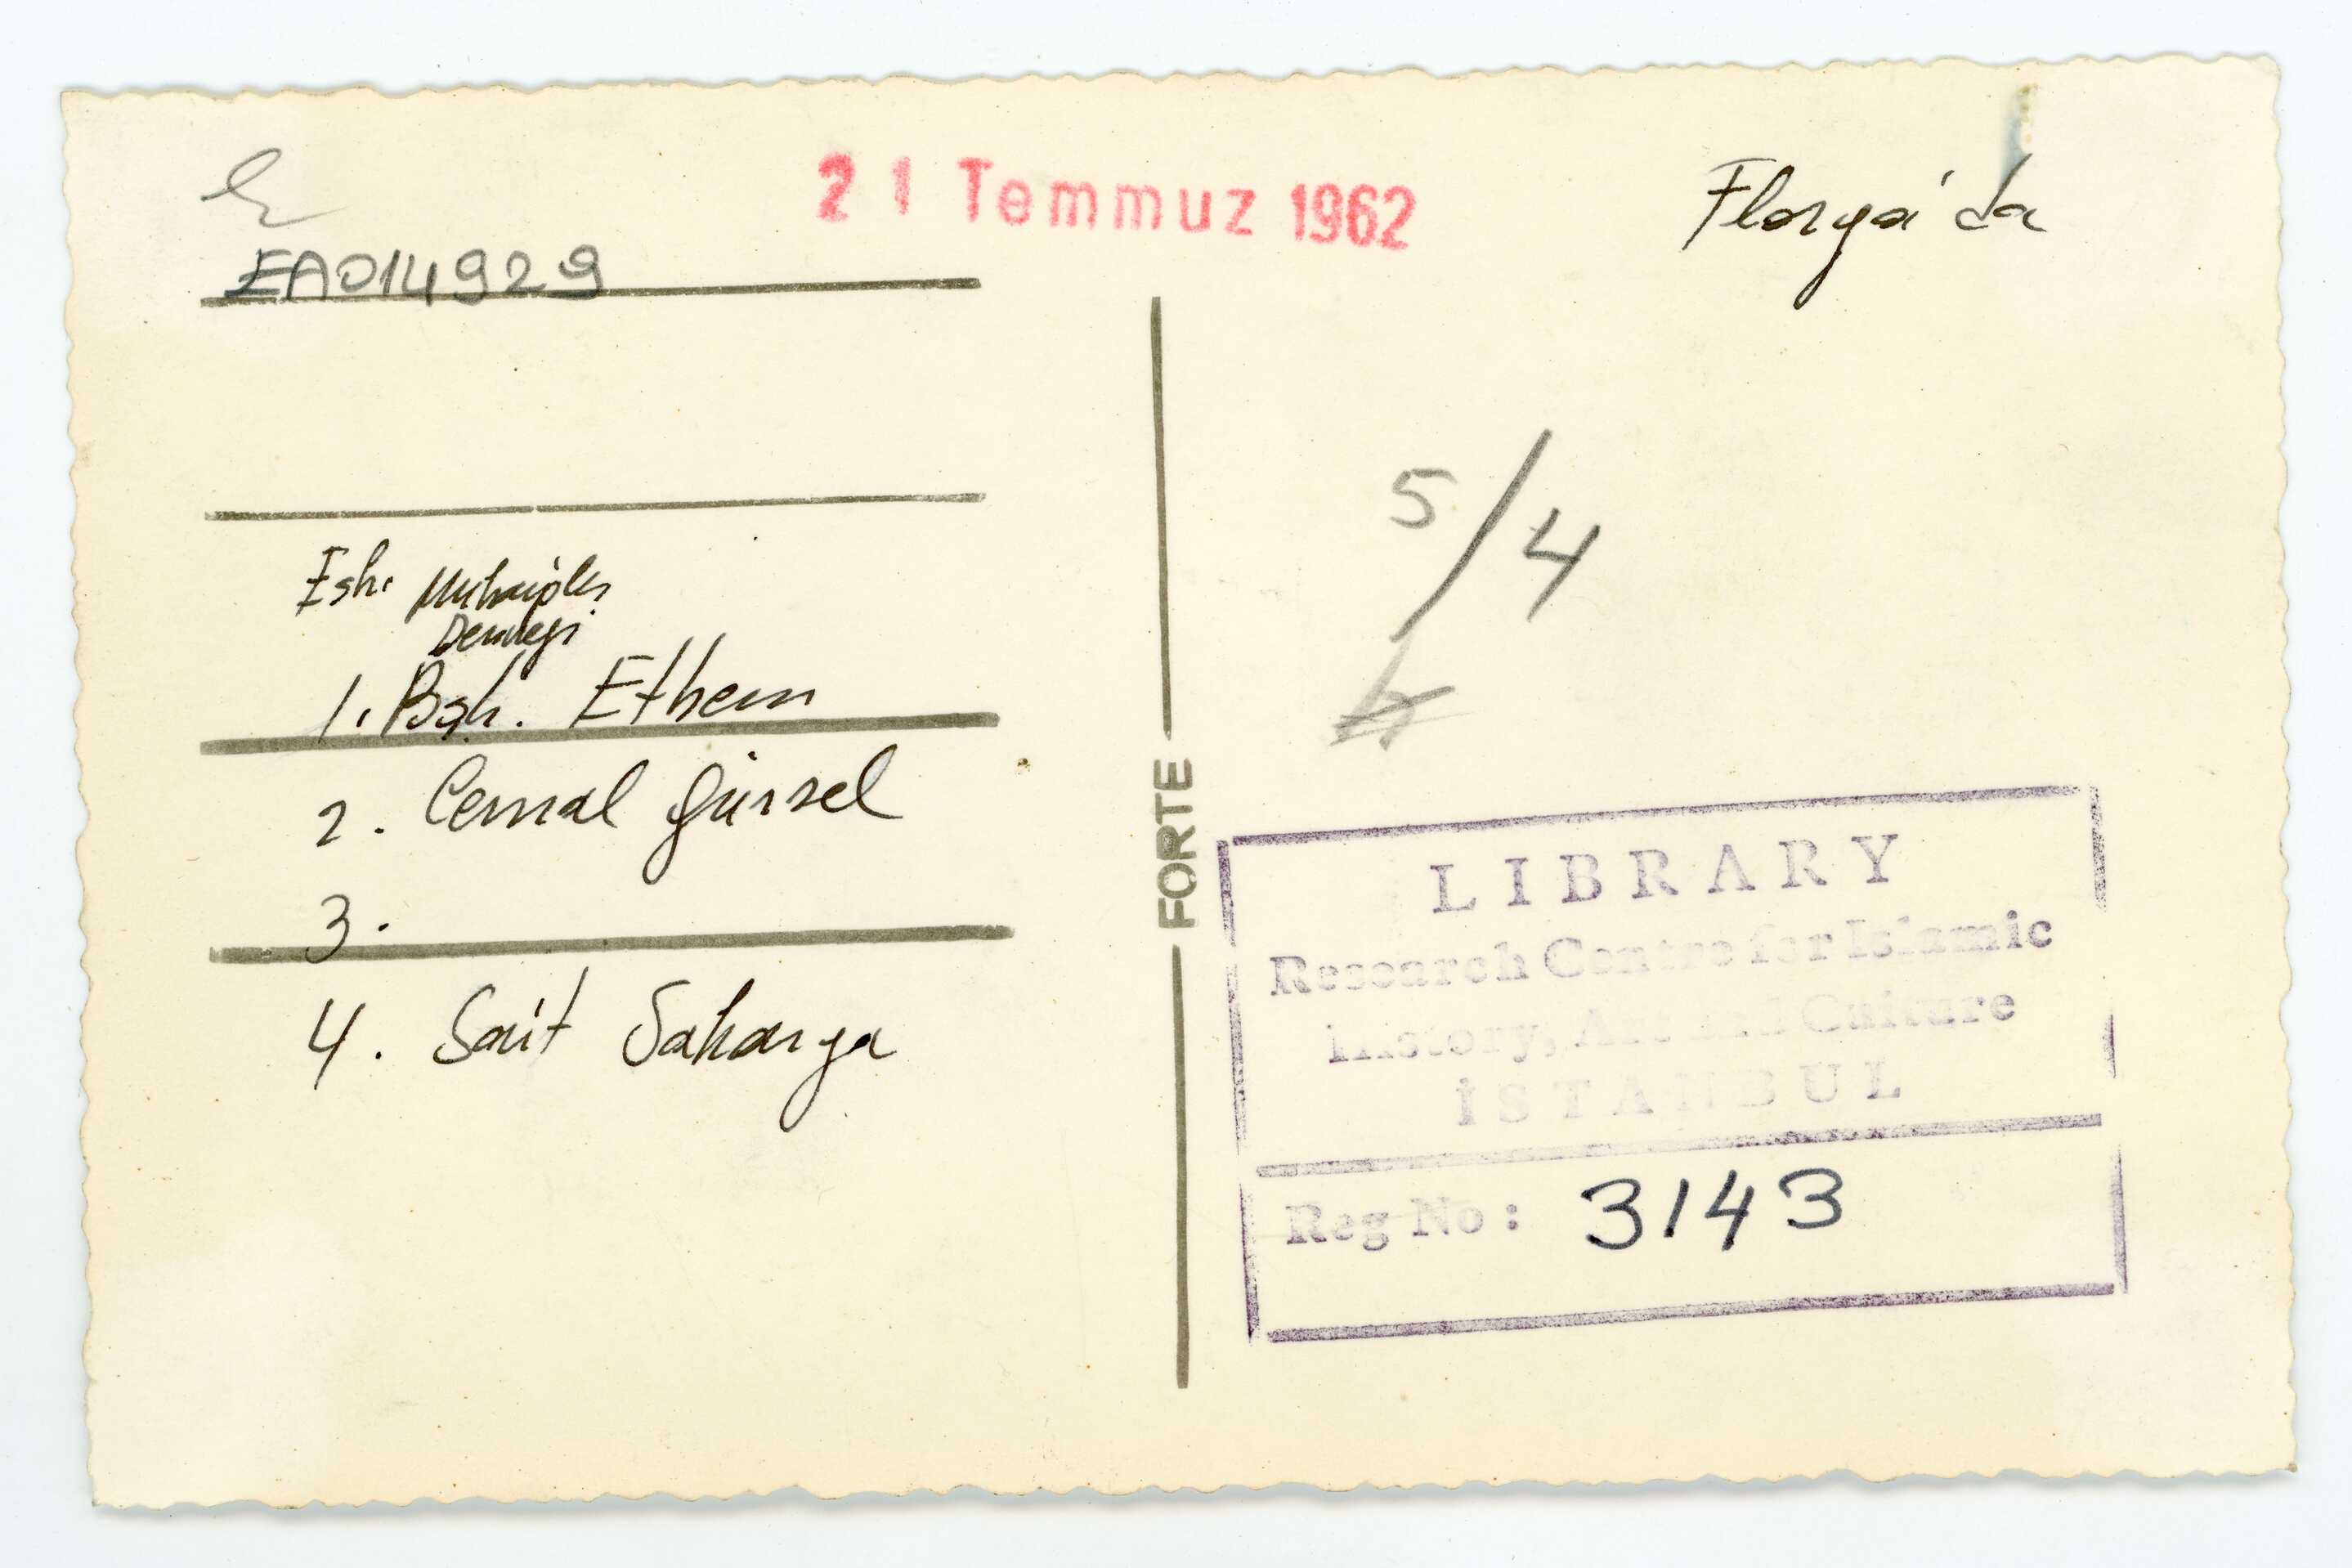 21 Temmuz 1962
Florya'da
EA014929
5/4
Eski Muharipler
Derneği
1. Bşk. Ethem
2. Cemal Gürsel
3.
4. Sait Sakarya
FORTE
LIBRARY
Research Centre for Islamic
History, Art and Culture
İSTANBUL
Reg No: 3143